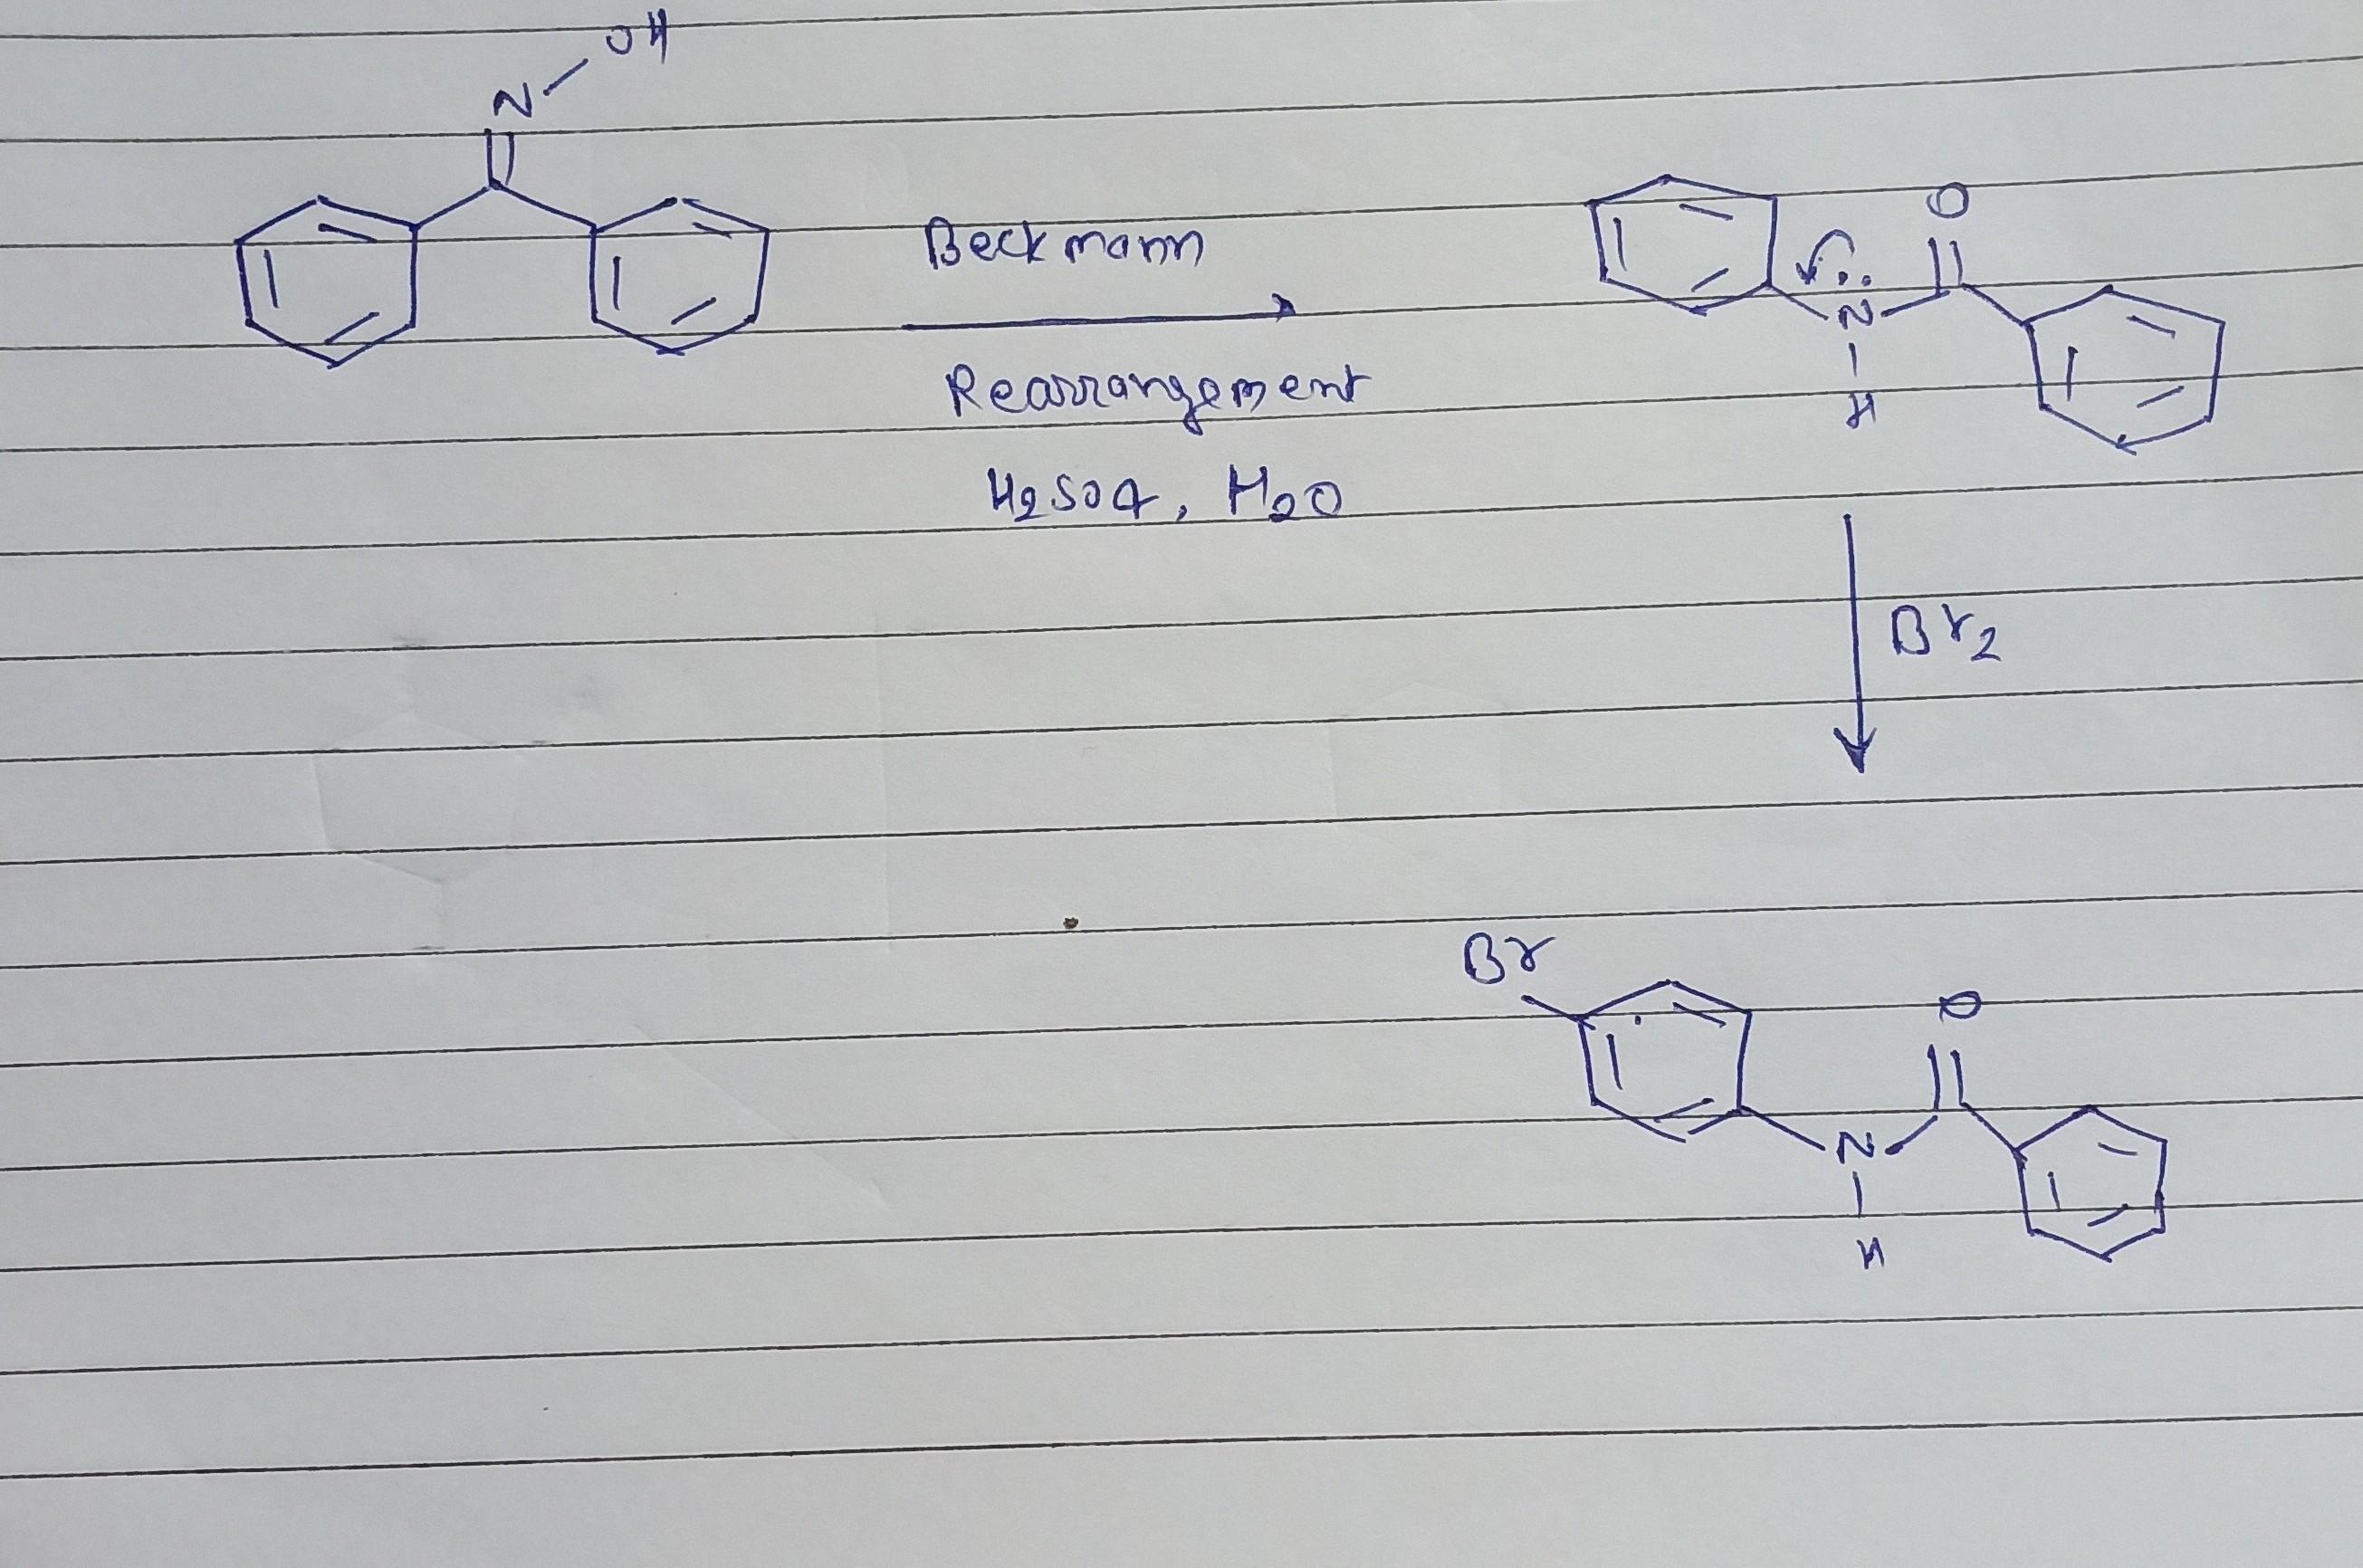 OH
N
Beckmann
Rearrangement
H2SO4, H2O
O
N
H
Br2
Br
O
N
H